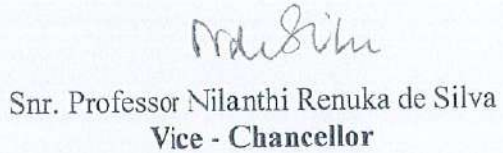 NRdeSilva
Snr. Professor Nilanthi Renuka de Silva
Vice - Chancellor